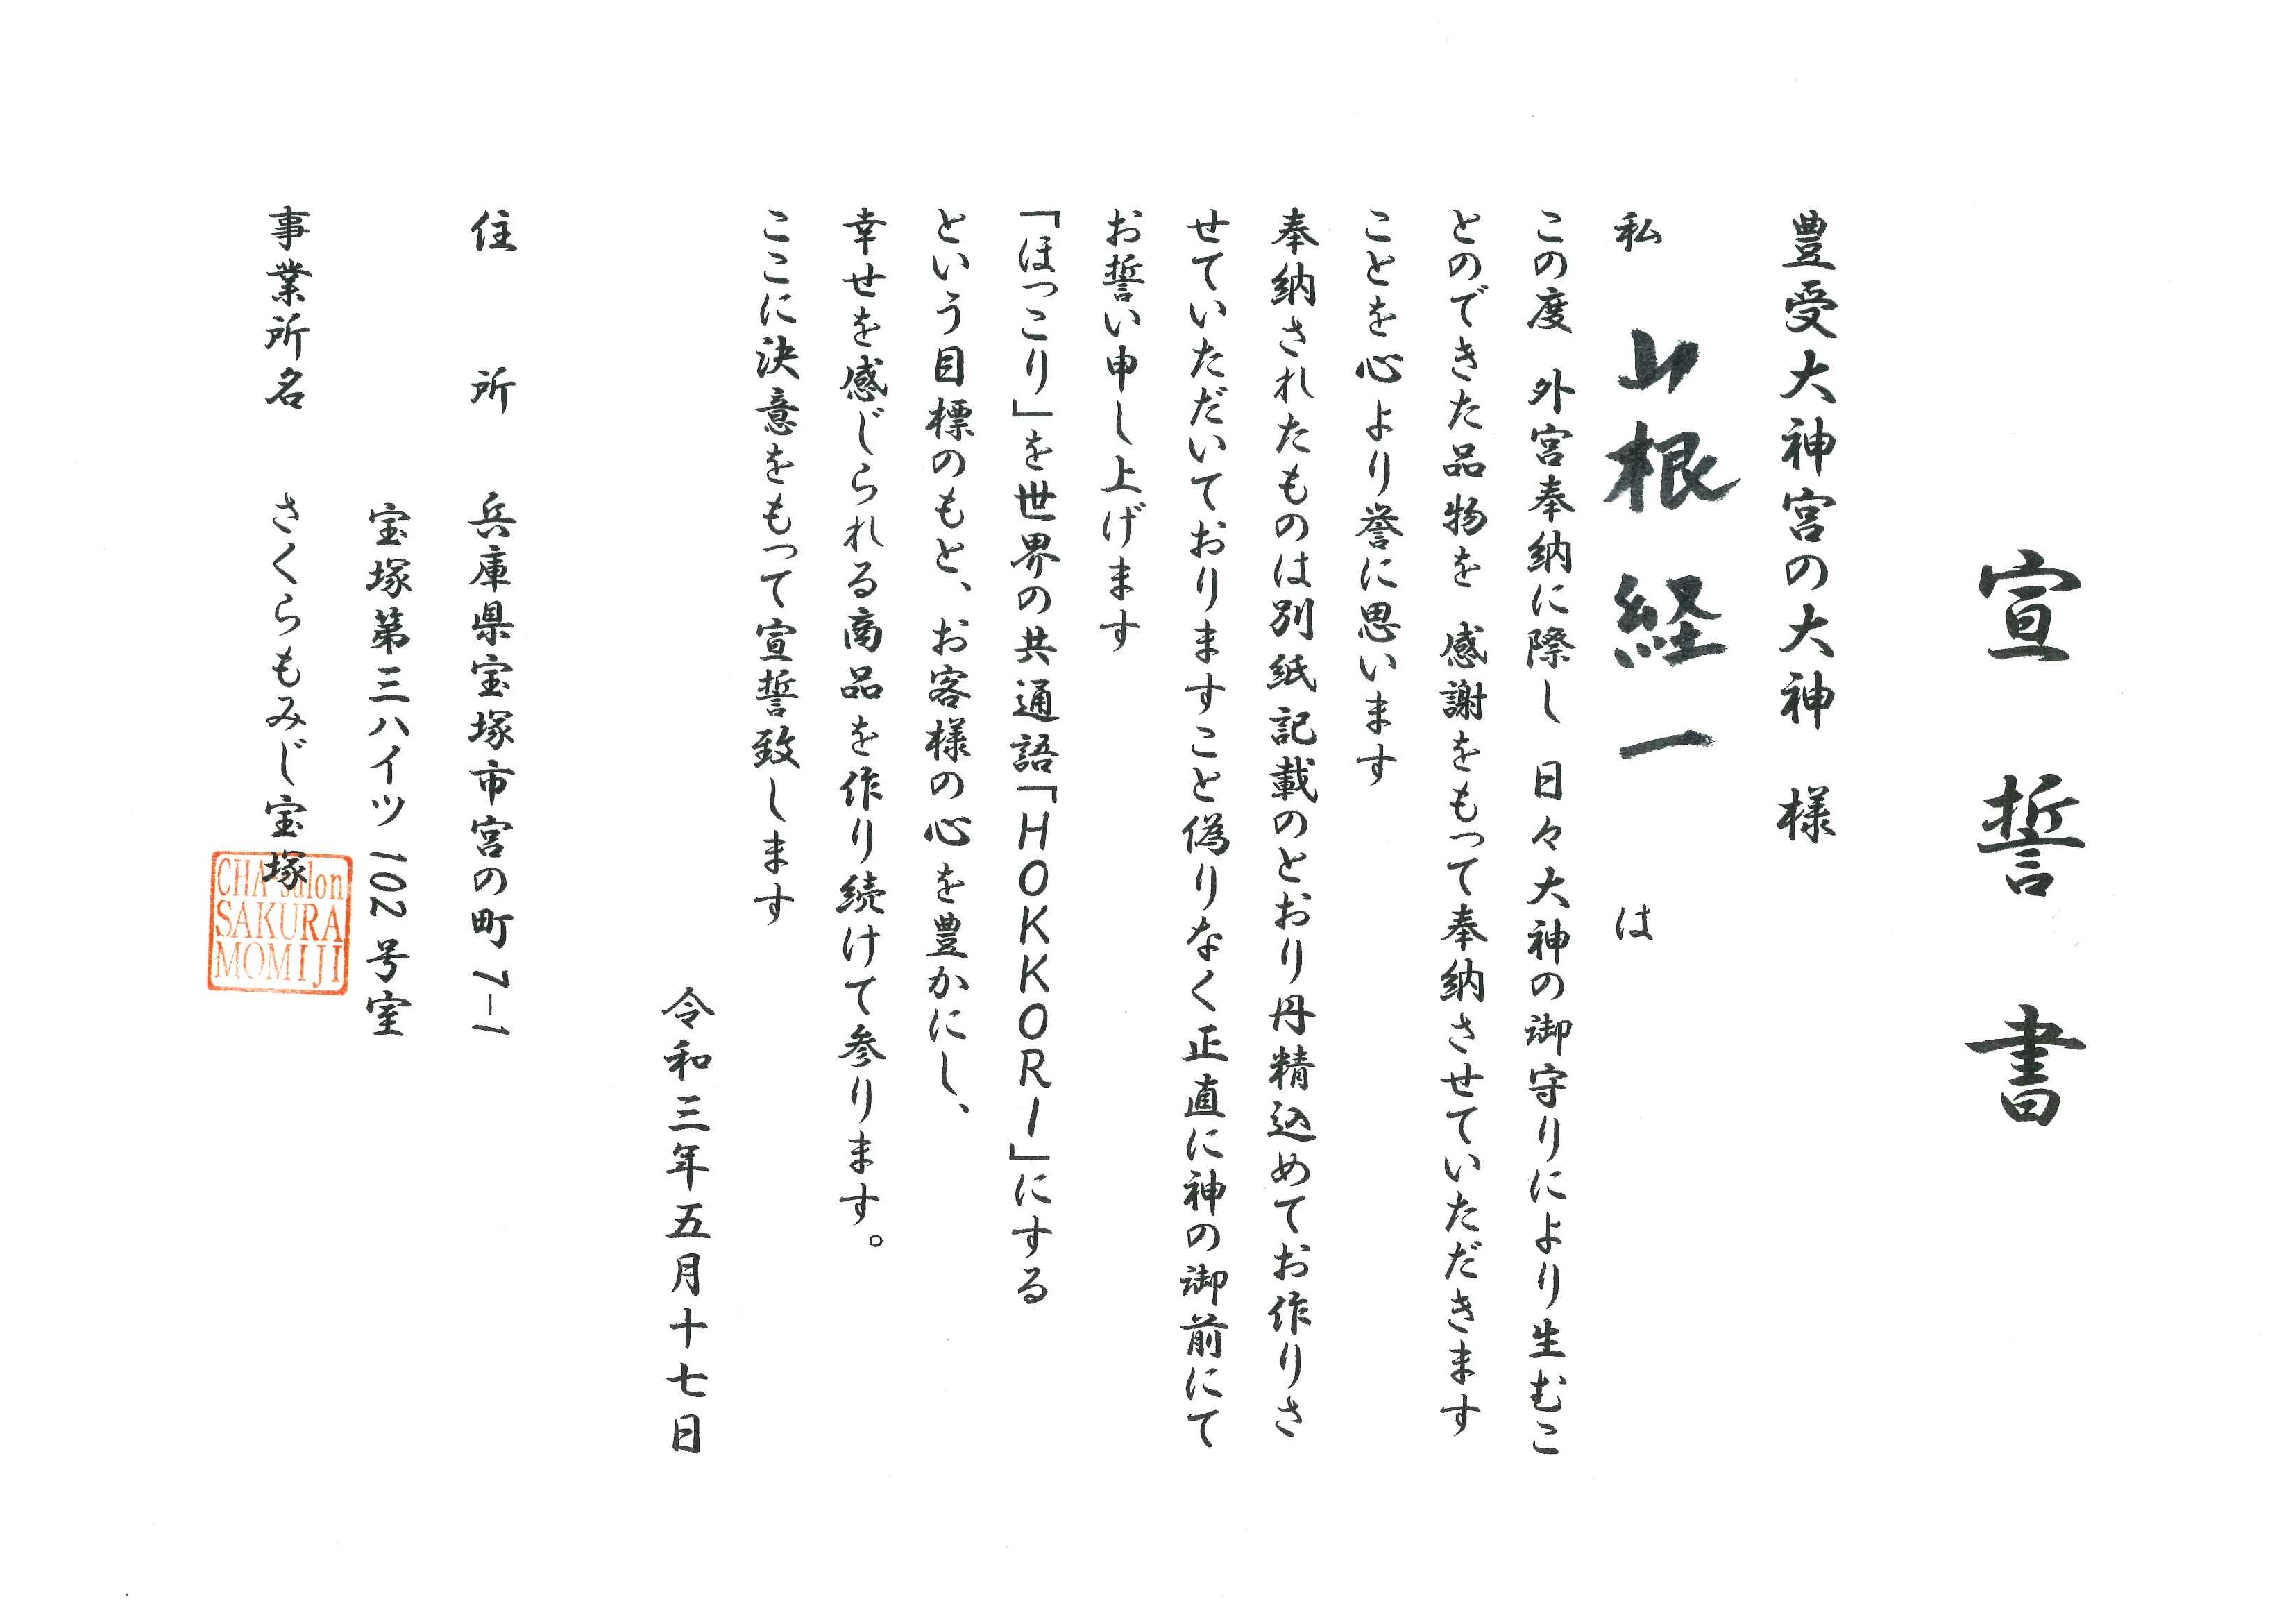 宣誓書
豊受大神宮の大神 様
私 山根 経一 は
この度 外宮奉納に際し 日々大神の御守りにより生むこ
とのできた品物を 感謝をもって奉納させていただきます
ことを心より誉に思います
奉納されたものは別紙記載のとおり丹精込めてお作りさ
せていただいておりますこと偽りなく正直に神の御前にて
お誓い申し上げます
「ほっこり」を世界の共通語「HOKKORI」にする
という目標のもと、お客様の心を豊かにし、
幸せを感じられる商品を作り続けて参ります。
ここに決意をもって宣誓致します
令和三年五月十七日
住 所 兵庫県宝塚市宮の町7-1
宝塚第三ハイツ102号室
事業所名 さくらもみじ宝塚
CHA salon
SAKURA
MOMIJI